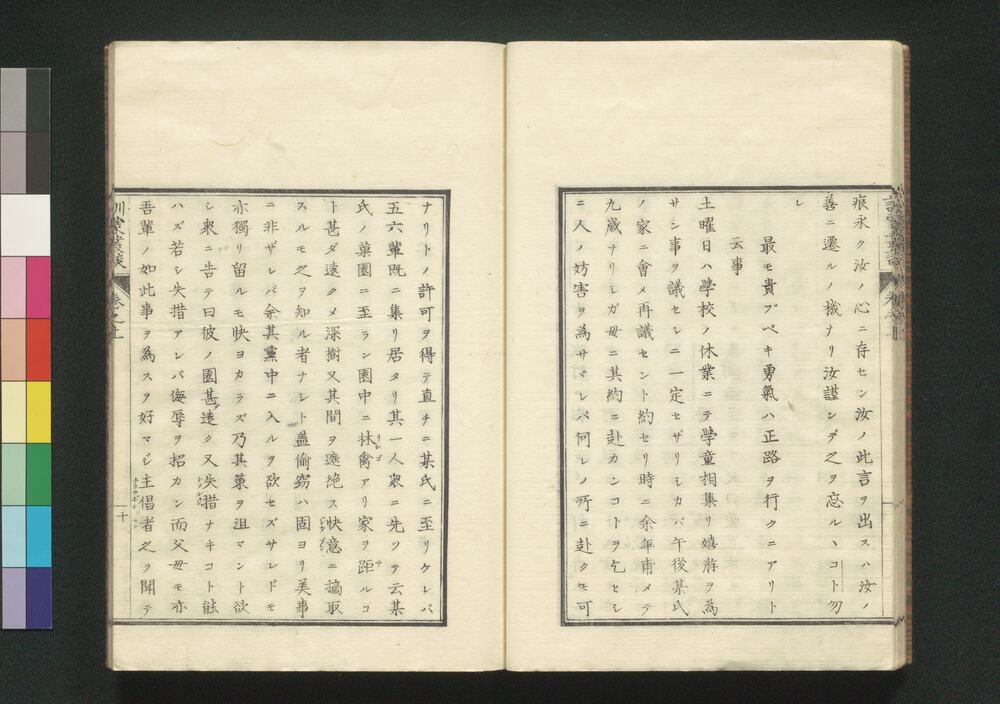 痕永ク汝ノ心ニ存セン汝ノ此言ヲ出スハ汝ノ
善ニ遷ルノ機ナリ汝謹ンデ之ヲ忘ルヽコト勿
レ
最モ貴ブベキ勇氣ハ正路ヲ行クニアリト
云事
土曜日ハ學校ノ休業ニテ學童相集リ嬉將ヲ為
サン事ヲ議セシニ一定セザリシカバ午後某氏
ノ家ニ會メ再議セント約セリ時ニ余年甫メテ
九歳ナリシガ母ニ其約ニ赴カンコトヲ乞ヒシ
ニ人ノ妨害ヲ為サヾレバ何レノ所ニ赴クモ可
ナリトノ許可ヲ得テ直チニ某氏ニ至リケレバ
五六輩既ニ集リ居タリ其一人衆ニ先ツテ云某
氏ノ菓園ニ至ラン園中ニ林禽アリ家ヲ距ルコ
ト甚ダ遠クメ深樹又其間ヲ遮絶ス快意ニ摘取
スルモ之ヲ知ル者ナシト蓋偷竊ハ固ヨリ美事
ニ非ザレバ余其黨中ニ入ルヲ欲セズサレドモ
亦獨リ留ルモ快ヨカラズ乃其策ヲ沮マント欲
シ衆ニ告テ曰彼ノ園甚遠ク又失措ナキコト能
ハズ若シ失措アレバ侮辱ヲ招カン而父母モ亦
吾輩ノ如此事ヲ為スヲ好マジ主倡者之ヲ聞テ
訓蒙叢談 卷之上
十